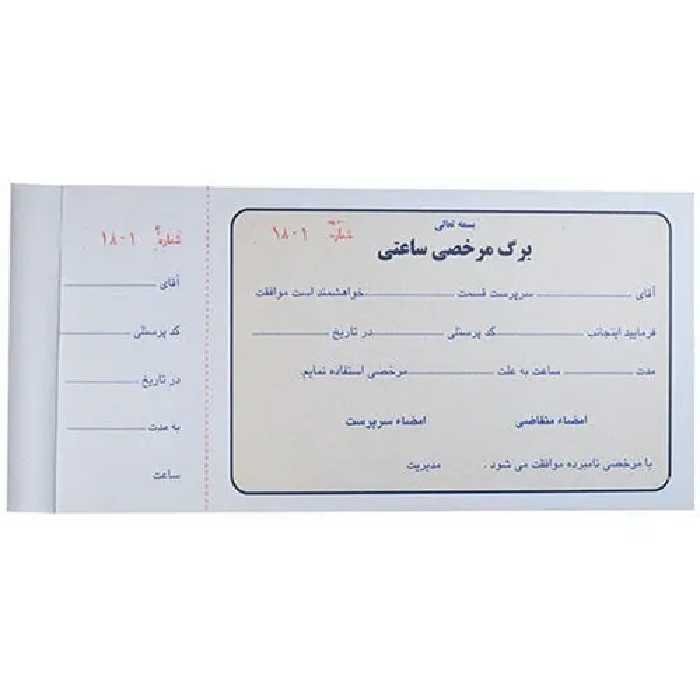 بسمه تعالی
شماره ۱۸۰۱
برگ مرخصی ساعتی
آقای ............ سرپرست قسمت ............ خواهشمند است موافقت
فرمایید اینجانب ............ کد پرسنلی ............ در تاریخ ............
مدت ............ ساعت به علت ............ مرخصی استفاده نمایم.
امضاء متقاضی امضاء سرپرست
با مرخصی نامبرده موافقت می شود . مدیریت
شماره ۱۸۰۱
آقای ............
کد پرسنلی ............
در تاریخ ............
به مدت ............
ساعت